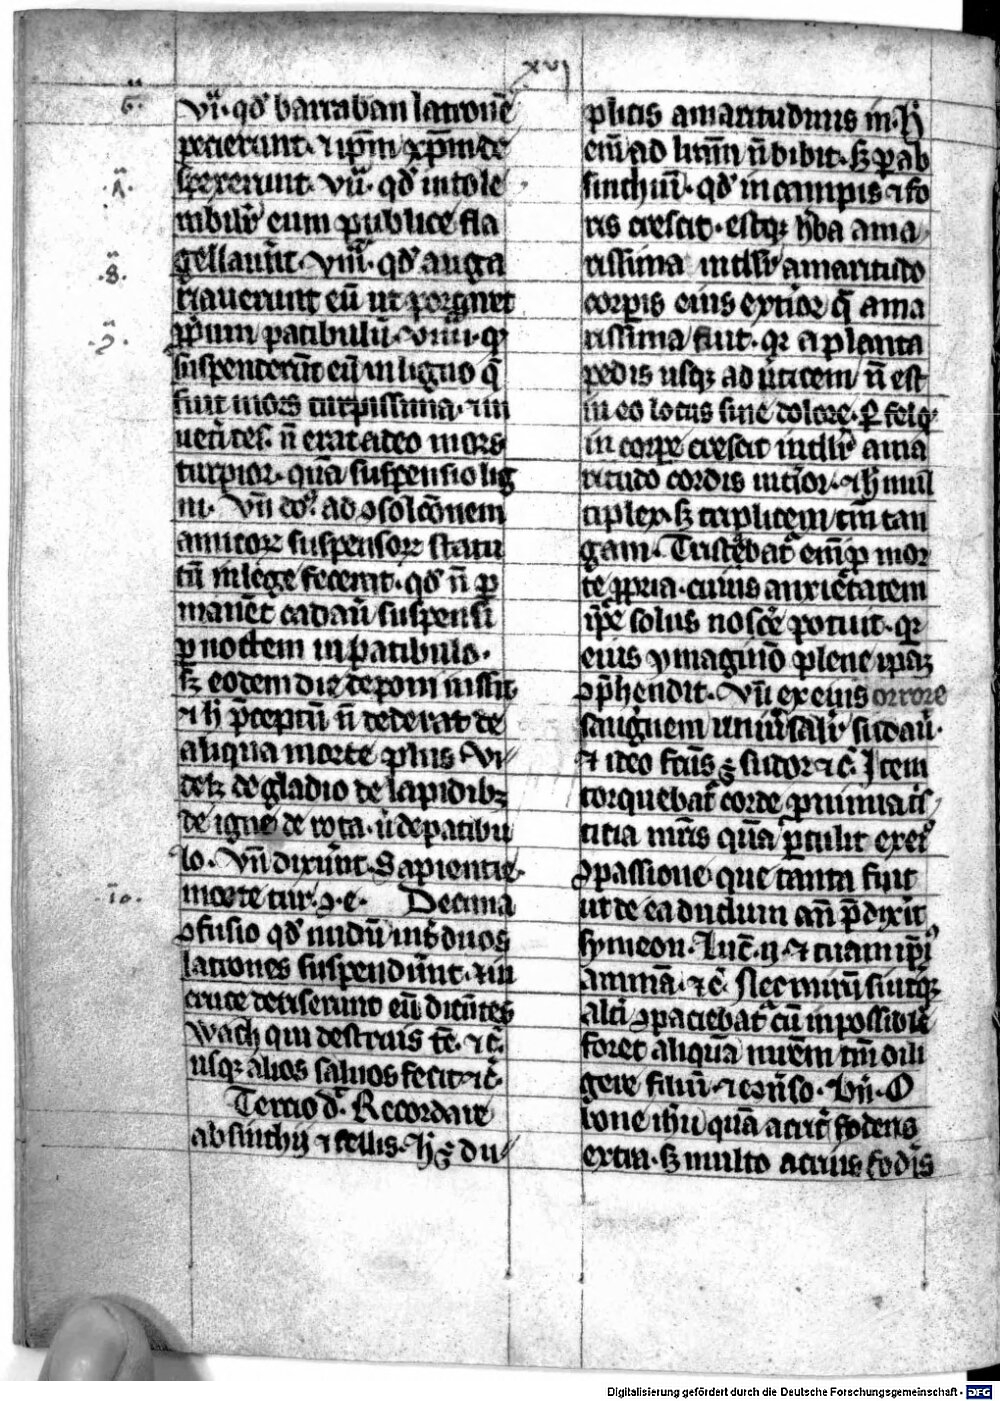 xvj
.6. vi. qd' barraban latronē
pecierunt. ⁊ ip̄m xp̄m de
.7. spexerunt. vii. qd' intole
rabilit' eum publice fla
.8. gellauer̄t. viii. qd' anga
riauerunt eū ut
.9. p̄um patibulū. viiii. q
suspenderūt eū in ligno q̄
fuit mors turpissima. ⁊ in
uet'i tes. n̄ erat adeo mors
turpior. quā suspensio lig
ni. Vn̄ ad ꝯsolōnem
amicoꝝ suspensoꝝ statu
tū in lege fecerat. qd' n̄ p
maneret cadau' suspensi
p noctem in patibulo.
sꝫ eodem die deponi iussit
⁊ h p̄ceptū n̄ dederat de
aliqua morte plus Vi
detꝫ de gladio de lapidibꝫ
de igne de rota. ū de patibu
lo. Vn̄ dixer̄nt. Sapientie
.10. morte tur. ꝯ. e. Decima
ꝯfusio qd' nudū int' duos
latrones suspender̄nt. ⁊ in
cruce deriserunt eū dicētes
wach qui destruis tē. ⁊ c̄.
usqꝫ alios saluos fecit ⁊ c̄.
Tercio d'. Recordare
absinthij ⁊ fellis. du
plicis amaritudinis
em̄ ad n̄ bibit. sꝫ p ab
sinthiū. qd' in campis ⁊ fo
ris crescit. estqꝫ h'ba ama
rissima intll'r amaritudo
corpis eius ext'ior q̄ ama
rissima fuit. qr a planta
pedis usqꝫ ad u'ticem n̄ est
in eo locus sine dolore. P' fel qd'
in corpe crescit intll'r ama
ritudo cordis int'ior. ⁊ h mul
tiplex. sꝫ triplicem tm̄ tan
gam. Tristabat' em̄ p mor
te ꝓpria. cuius anxietatem
ip̄e solus nosc'e potuit. qr
eius ymaginō plene ipaꝫ
ꝯp̄hendit. Vn̄ ex eius orrore
sanguem uniu'salit' sudau'.
⁊ ideo fc̄us ē sudor ⁊ c̄. Item
torquebat' corde p nimia t's
titia mr̄is quā p'tulit ex ei'
ꝯpassione que tanta fuit
ut de ea dudum an̄ p̄dixit
symeon. Luc̄. ij. ⁊ tuam ip̄i'
animā. ⁊ c̄. Nec mirū si utqꝫ
alt'i ꝯpaciebat' cū inpossibile
foret aliquā mr̄em tm̄ dili
gere filiū. ⁊ econ̄so. Bn̄. O
bone ihu quā acrit' fodens
extra. sꝫ multo acrius fodis
Digitalisierung gefördert durch die Deutsche Forschungsgemeinschaft - DFG